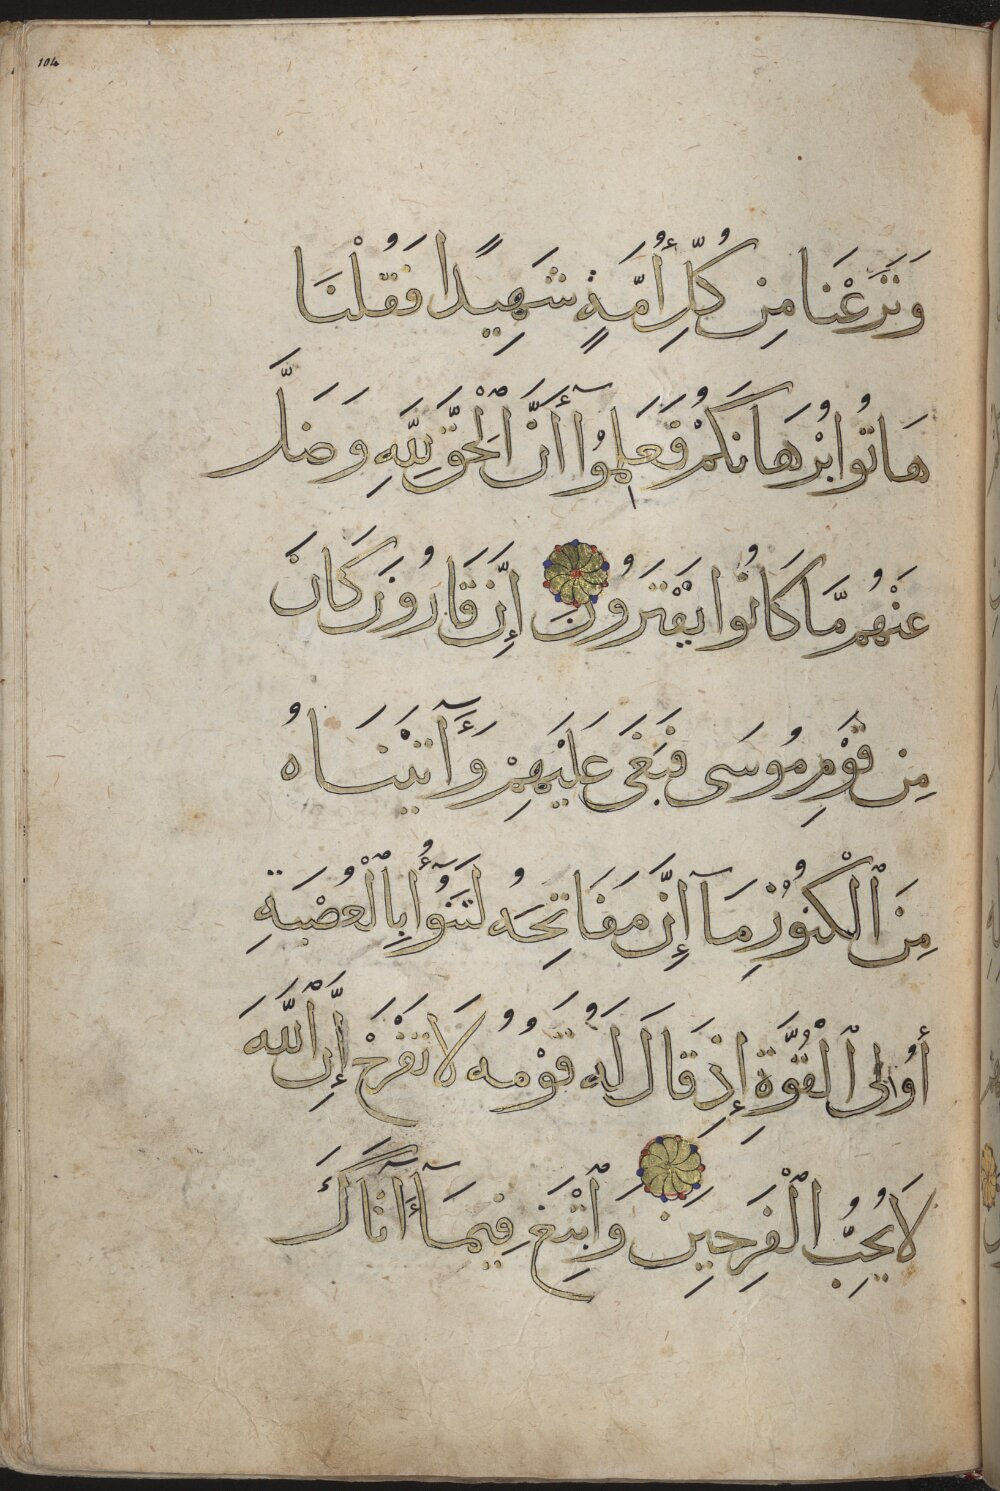 104
وَنَزَعْنَا مِن كُلِّ أُمَّةٍ شَهِيدًا فَقُلْنَا
هَاتُوا بُرْهَانَكُمْ فَعَلِمُوٓا أَنَّ ٱلْحَقَّ لِلَّهِ وَضَلَّ
عَنْهُم مَّا كَانُوا يَفْتَرُونَ إِنَّ قَارُونَ كَانَ
مِن قَوْمِ مُوسَى فَبَغَى عَلَيْهِمْ وَءَآتَيْنَاهُ
مِنَ ٱلْكُنُوزِ مَآ إِنَّ مَفَاتِحَهُ لَتَنُوٓأُ بِٱلْعُصْبَةِ
أُولِى ٱلْقُوَّةِ إِذْ قَالَ لَهُ قَوْمُهُ لَا تَفْرَحْ إِنَّ ٱللَّهَ
لَا يُحِبُّ ٱلْفَرِحِينَ وَٱبْتَغِ فِيمَآ ءَآتَاكَ